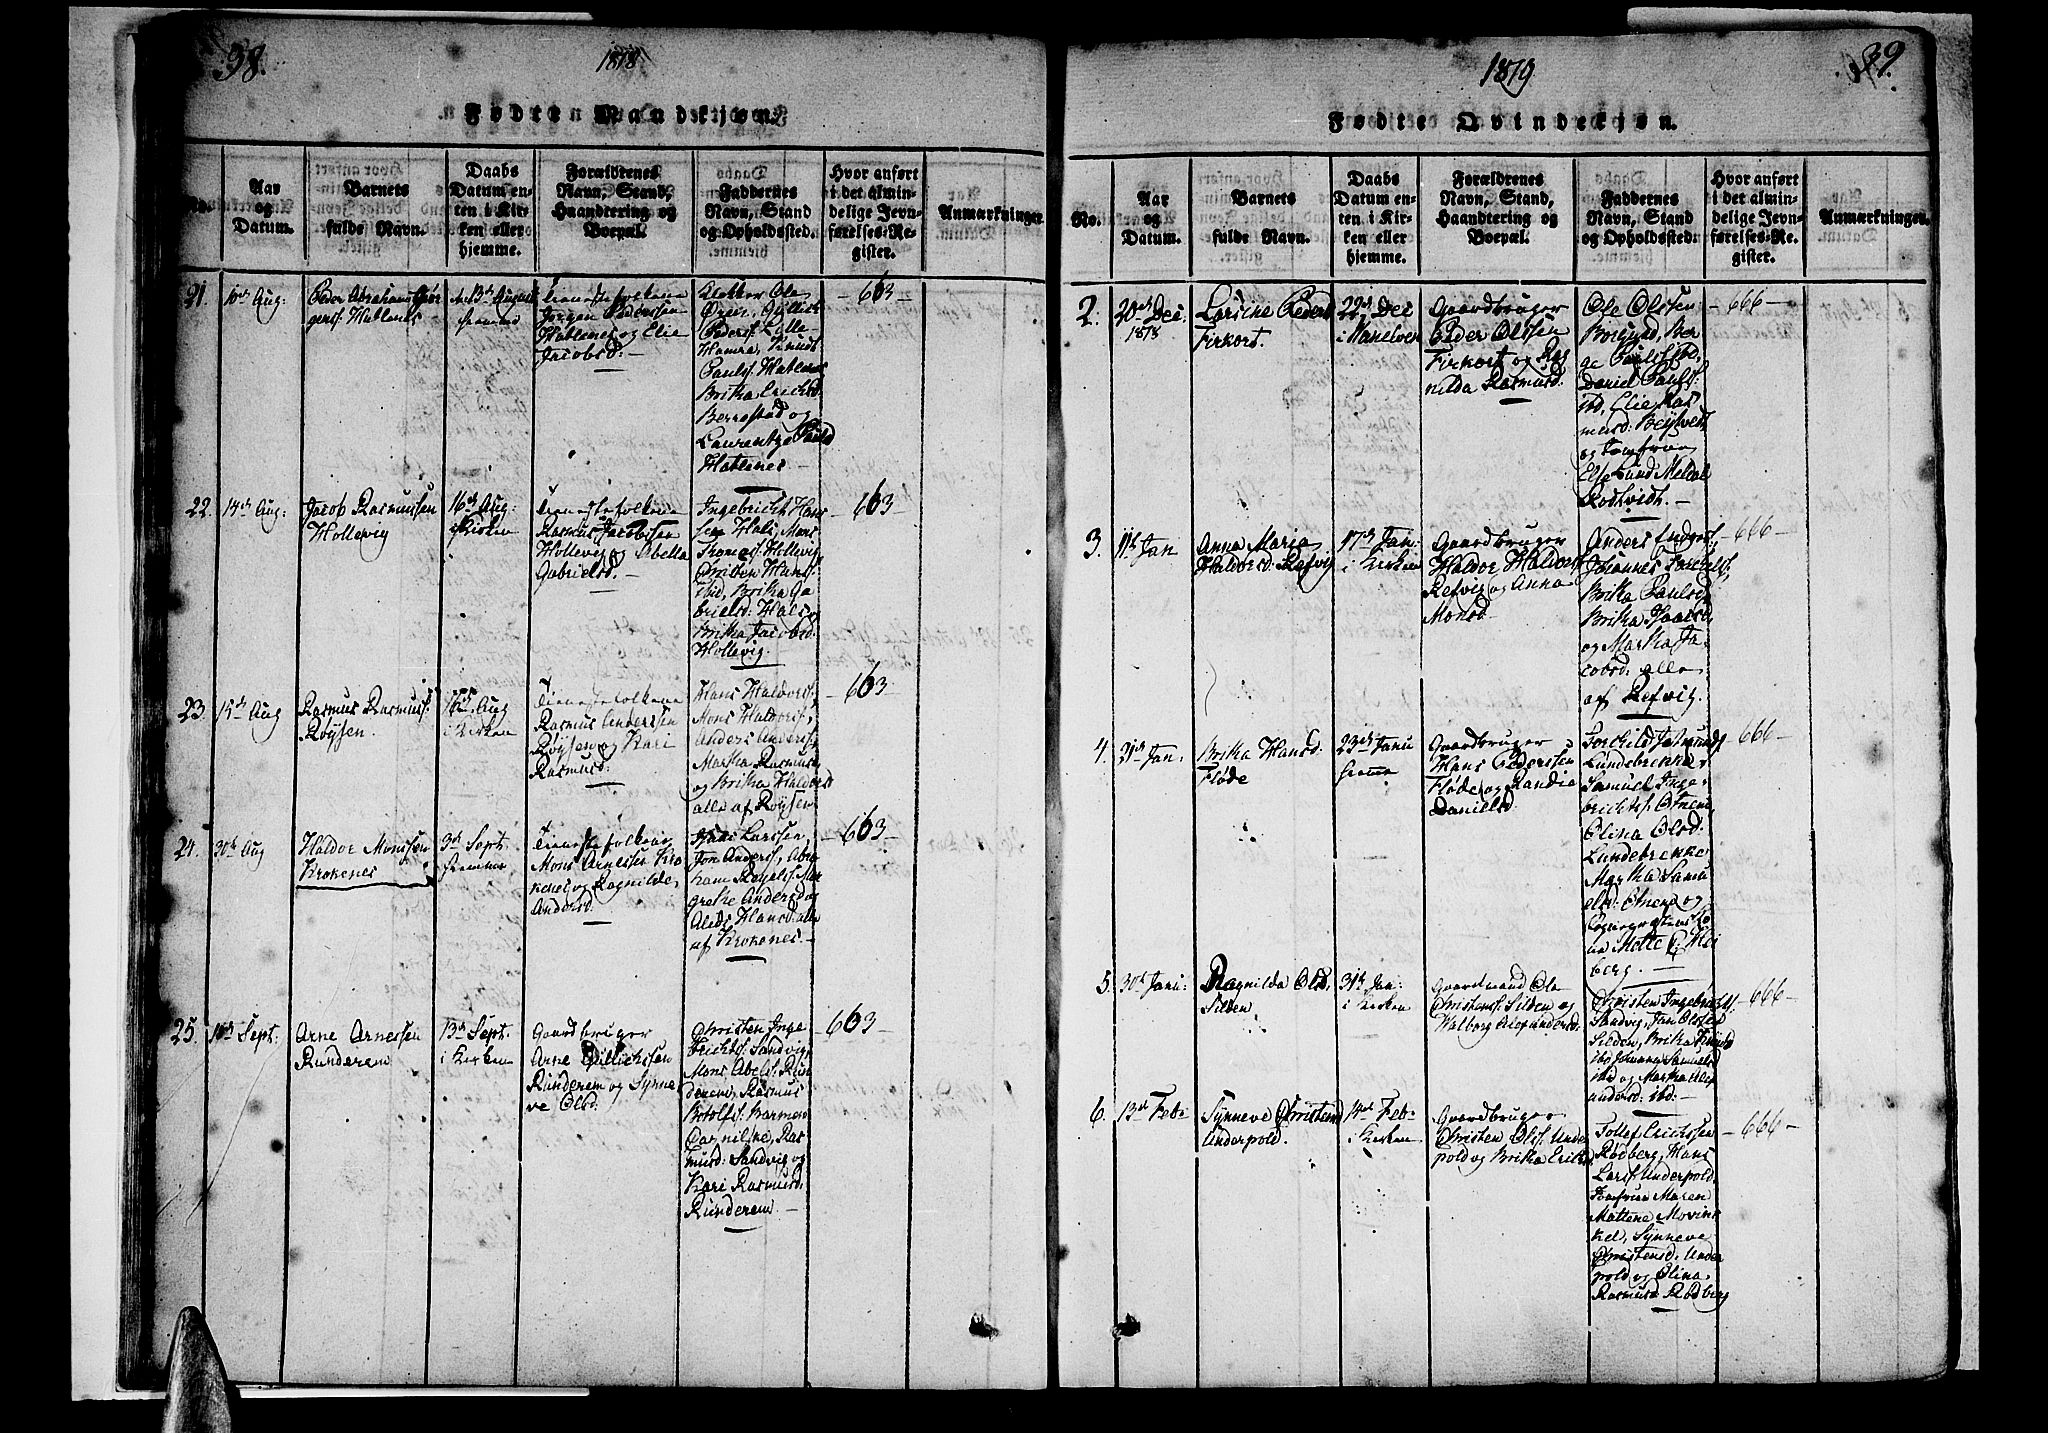 38.
1818
Födte Mandekjøn.
No.
Aar
og
Datum.
Barnets
fulde Navn.
Daabs
Datum en-
ten i Kir-
ken eller
hjemme.
Forældrenes
Navn, Stand,
Haandtering og
Boepæl.
Faddernes
Navn, Stand
og Opholdssted.
Hvor anført
i det almin-
delige Jevn-
førelses-Re-
gister.
Anmærkninger.
21.
10de Aug:
Peder Abrahams Jør
gens: Hatlenes
13de August
hiemme
Tienestefolkene
Jørgen Pedersen
Hatlenes og Elie
Jacobsd: —
Klokker Ole
Peders:
Hamre, Knud
Pauls: Hatlenes
Brita Erichsd:
Berrestad og
Laurentze Paulsd
Hatlenes —
— 663 —
22.
14de Aug:
Jacob Rasmussen
Hollevig
16de Aug:
i Kirken
Tienestefolkene
Rasmus Jacobsen
Hollevig og Abella
Gabrielsd. —
Ingebricht Hans
sen Hals, Mons
Thomas: Hollevig,
Christen Hans:
ibid, Brita Ga
brielsd: Hals og
Brita Jacobsd:
Hollevig. —
— 663
23.
15de Aug
Rasmus Rasmuss:
Røysen.
16de Aug
i Kirken
Tienestefolkene
Rasmus Anderssen
Røysen og Kari
Rasmusd:
Hans Haldors:
Mons Haldors:,
Anders Anders:
Martha Rasmusd:
og Brita Haldorsd
alle af Røysen
— 663
24.
30te Aug
Haldor Monssen
Krokenes
3de Sept
hiemme
Tienestefolkene
Mons Arnessen Kro
kenes og Ragnilde
Andersd.
Hans Larssen,
Jon Anders:, Abra
ham Rogelss: Mar
grethe Andersd og
Aleds Hansd: alle
af Krokenes. —
— 663 —
25.
10de Sept:
Arne Arnessen
Runderem
13de Sept.
i Kirken
Gaardbruger
Arne Dillichssen
Runderem og Synne
ve Olsd.
Christen Inge
brichts: Sandvig,
Mons Abels: Run
derem, Rasmus
Botolfs: Barmen
Carniliue Ras
musd: Sandvig og
Kari Rasmusd.
Runderem —
— 663
39.
1819
Fødte Qvindekjøn.
No.
Aar
og
Datum.
Barnets
fulde Navn.
Daabs
Datum en-
ten i Kir-
ken eller
hjemme.
Forældrenes
Navn, Stand,
Haandtering og
Boepæl.
Faddernes
Navn, Stand
og Opholdssted.
Hvor anført
i det almin-
delige Jevn-
førelses-Re-
gister.
Anmærkninger.
2.
20de Dec:
1818
Lorsine Peders
Firkort.
22de Dec
i Manelven
Gaardbruger
Peder Olssen
Firkort og Rag
nilda Rasmusd:
Ole Olssen
Borgund, Bør
ge Pauls: ibd,
Daniel Pauls:
ibd, Elie Ras
musd:
og Jomfrue
Else Lund Meldal
Rodtvidt. —
— 666 —
3.
11te Jan
Anna Maria
Haldorsd: Refvig
17de Jan:
i Kirken
Gaardbruger
Haldor Haldors:
Refvig og Anna
Monsd
Anders Anders:,
Johannes
Brita Paulsd,
Brita
og Martha Ja
cobsd: alle
af Refvig.
— 666 —
4.
21de Jan,
Brita Hansd:
Fløde
23de Janu
hiemme
Gaardbruger
Hans Pederssen
Fløde og Randia
Danielsd.
Torchild Asmunds:
Lundebrekke,
Samuel Inge
brichts: Otnem,
Olina Olsd:
Lundebrekke
Martha Samu
elsd: Otnem og
Mette C: Hei
berg. —
— 666 —
5.
30de Janu:
Ragnilda Olsd.
Silden
31te Jan:
i Kirken
Gaardmand Ole
Christens: Silden og
Walborg Alexandersd:
Christen Ingebrichts:
Sandvig, Jan Olssen
Silden, Brita Knudsd
ibd Johanna Samuelsd
ibid og Martha Alex
andersd: ibd: —
— 666 —
6.
13de Feb:
Synneve Christensd
Underpold.
14de Feb:
i Kirken
Gaardbruger
Christen Ols: Under
pold og Brita Erichsd
Tollef Erichssen
Rødberg, Hans
Lars: Underpold,
Jomfrue Maren
Mattene Movink
kel, Synneve
Christensd: Under
pold og Olina
Rasmusd Rødberg
— 666 —